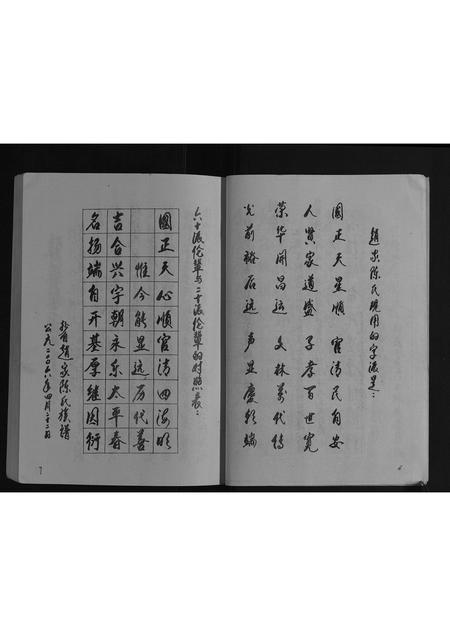 趙家陈氏现用的字派是：
國正天星順 官清民自安
人賢家道盛 子孝百世寬
荣华開昌运 文林萬代傳
光前裕后远 声显慶
六十派伦輩与二十派伦輩的对照表：
國正天心順官清四海明
惟今能显远历代善
吉合兴字朝永乐太平春
名扬端自开基厚继因衍
趙家陈氏族譜
公元二〇〇六年四月二十二日
7
6